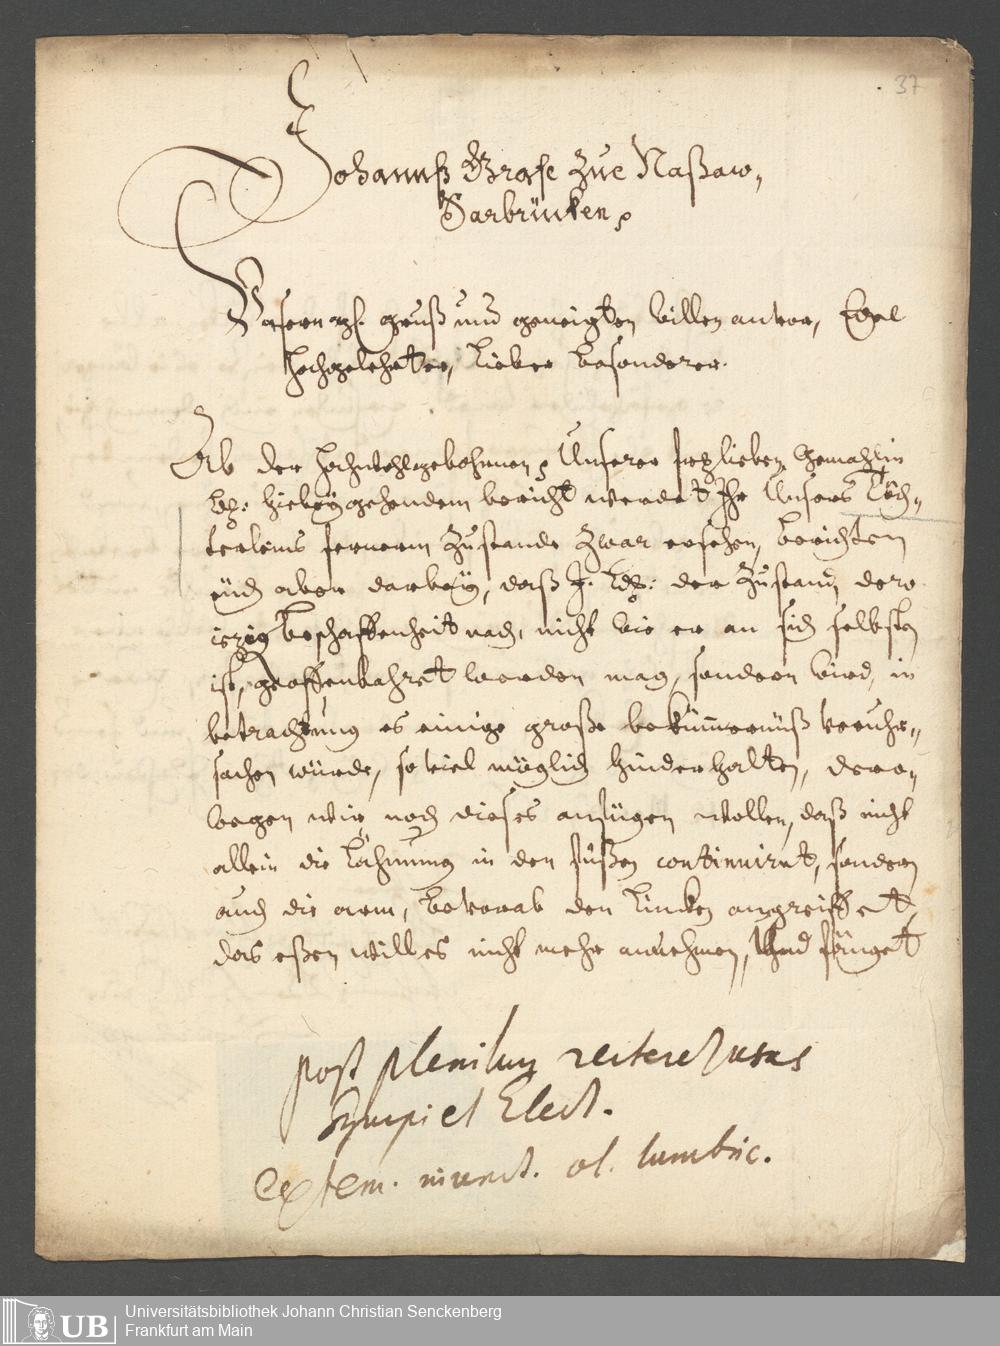 37
Johannß Graffe zue Naßaw,
Sarbrücken p
Unsern gruß und geneigten willen anvor, Edel
Hochgelehrter, Lieber besonderer.
Ab der hochwohlgebohrnen p Unserer hertzlieben Gemahlin
Ld: hiebeygehendem bericht werdet Ihr Unsers Töch-
terleins fernerm Zustande zwar ersehen, berichten
eüch aber darbey, daß J. Ld: der Zustand, dero
ietzig beschaffenheit nach, nicht wie er an sich selbsten
ist, geoffenbahret werden mag, sondern wird, in
betrachtung es einige große bekümmernüß veruhr-
sachen würde, so viel müglich hinderhalten, dero-
wegen wir noch dieses anfügen wollen, daß nicht
allein die Lähmung in den füßen continuiret, sondern
auch die arm, bevorab den Lincken angreiffet,
das eßen will es nicht mehr annehmen, Und fänget
post plenilun
Syrupi et Elect.
extern. inunct. ol. lumbric.
Universitätsbibliothek Johann Christian Senckenberg
Frankfurt am Main
UB